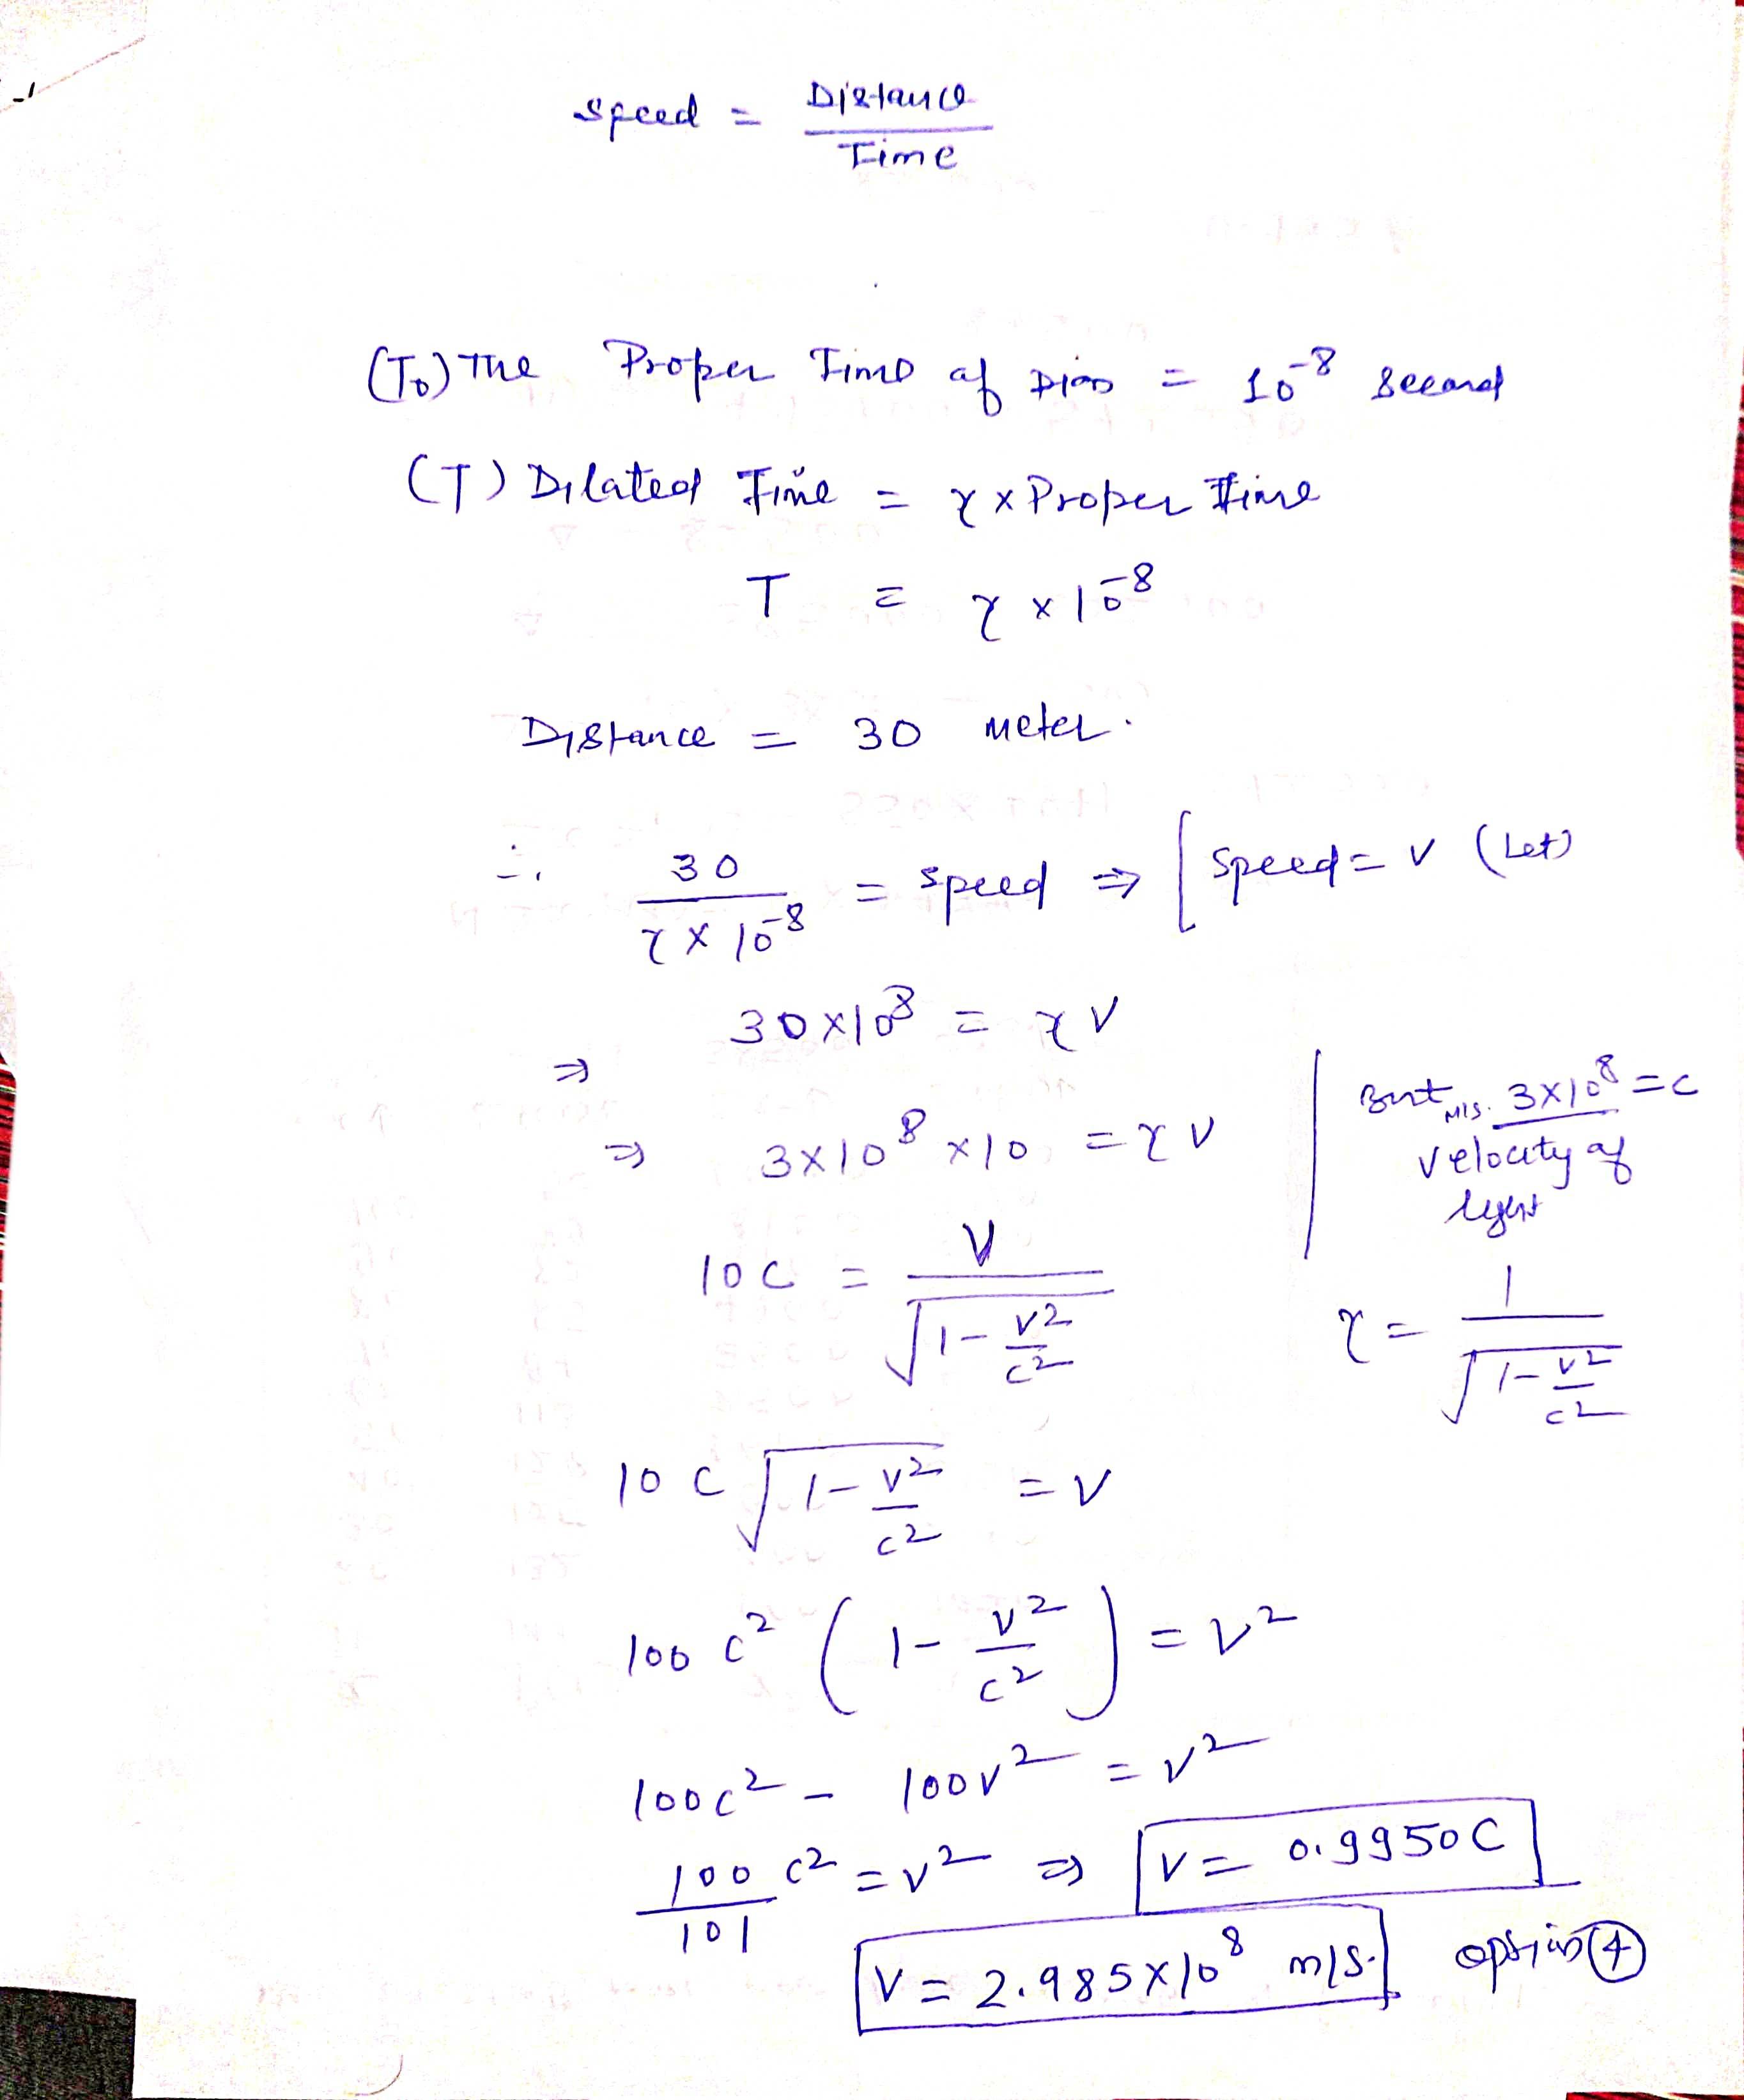 Speed = Distance / Time
(T₀) The Proper Time of pion = 10⁻⁸ Second
(T) Dilated Time = γ × Proper Time
T = γ × 10⁻⁸
Distance = 30 meter.
∴ 30 / γ × 10⁻⁸ = speed ⇒ [ Speed = v (Let)
⇒ 30×10⁸ = γ v
⇒ 3×10⁸ ×10 = γ v
But 3×10⁸ m/s. = c
velocity of
light
10 c = v / √(1 - v²/c²)
γ = 1 / √(1 - v²/c²)
10 c √(1 - v²/c²) = v
100 c² (1 - v²/c²) = v²
100c² - 100v² = v²
100/101 c² = v² ⇒ v = 0.9950 C
v = 2.985×10⁸ m/s. option ④